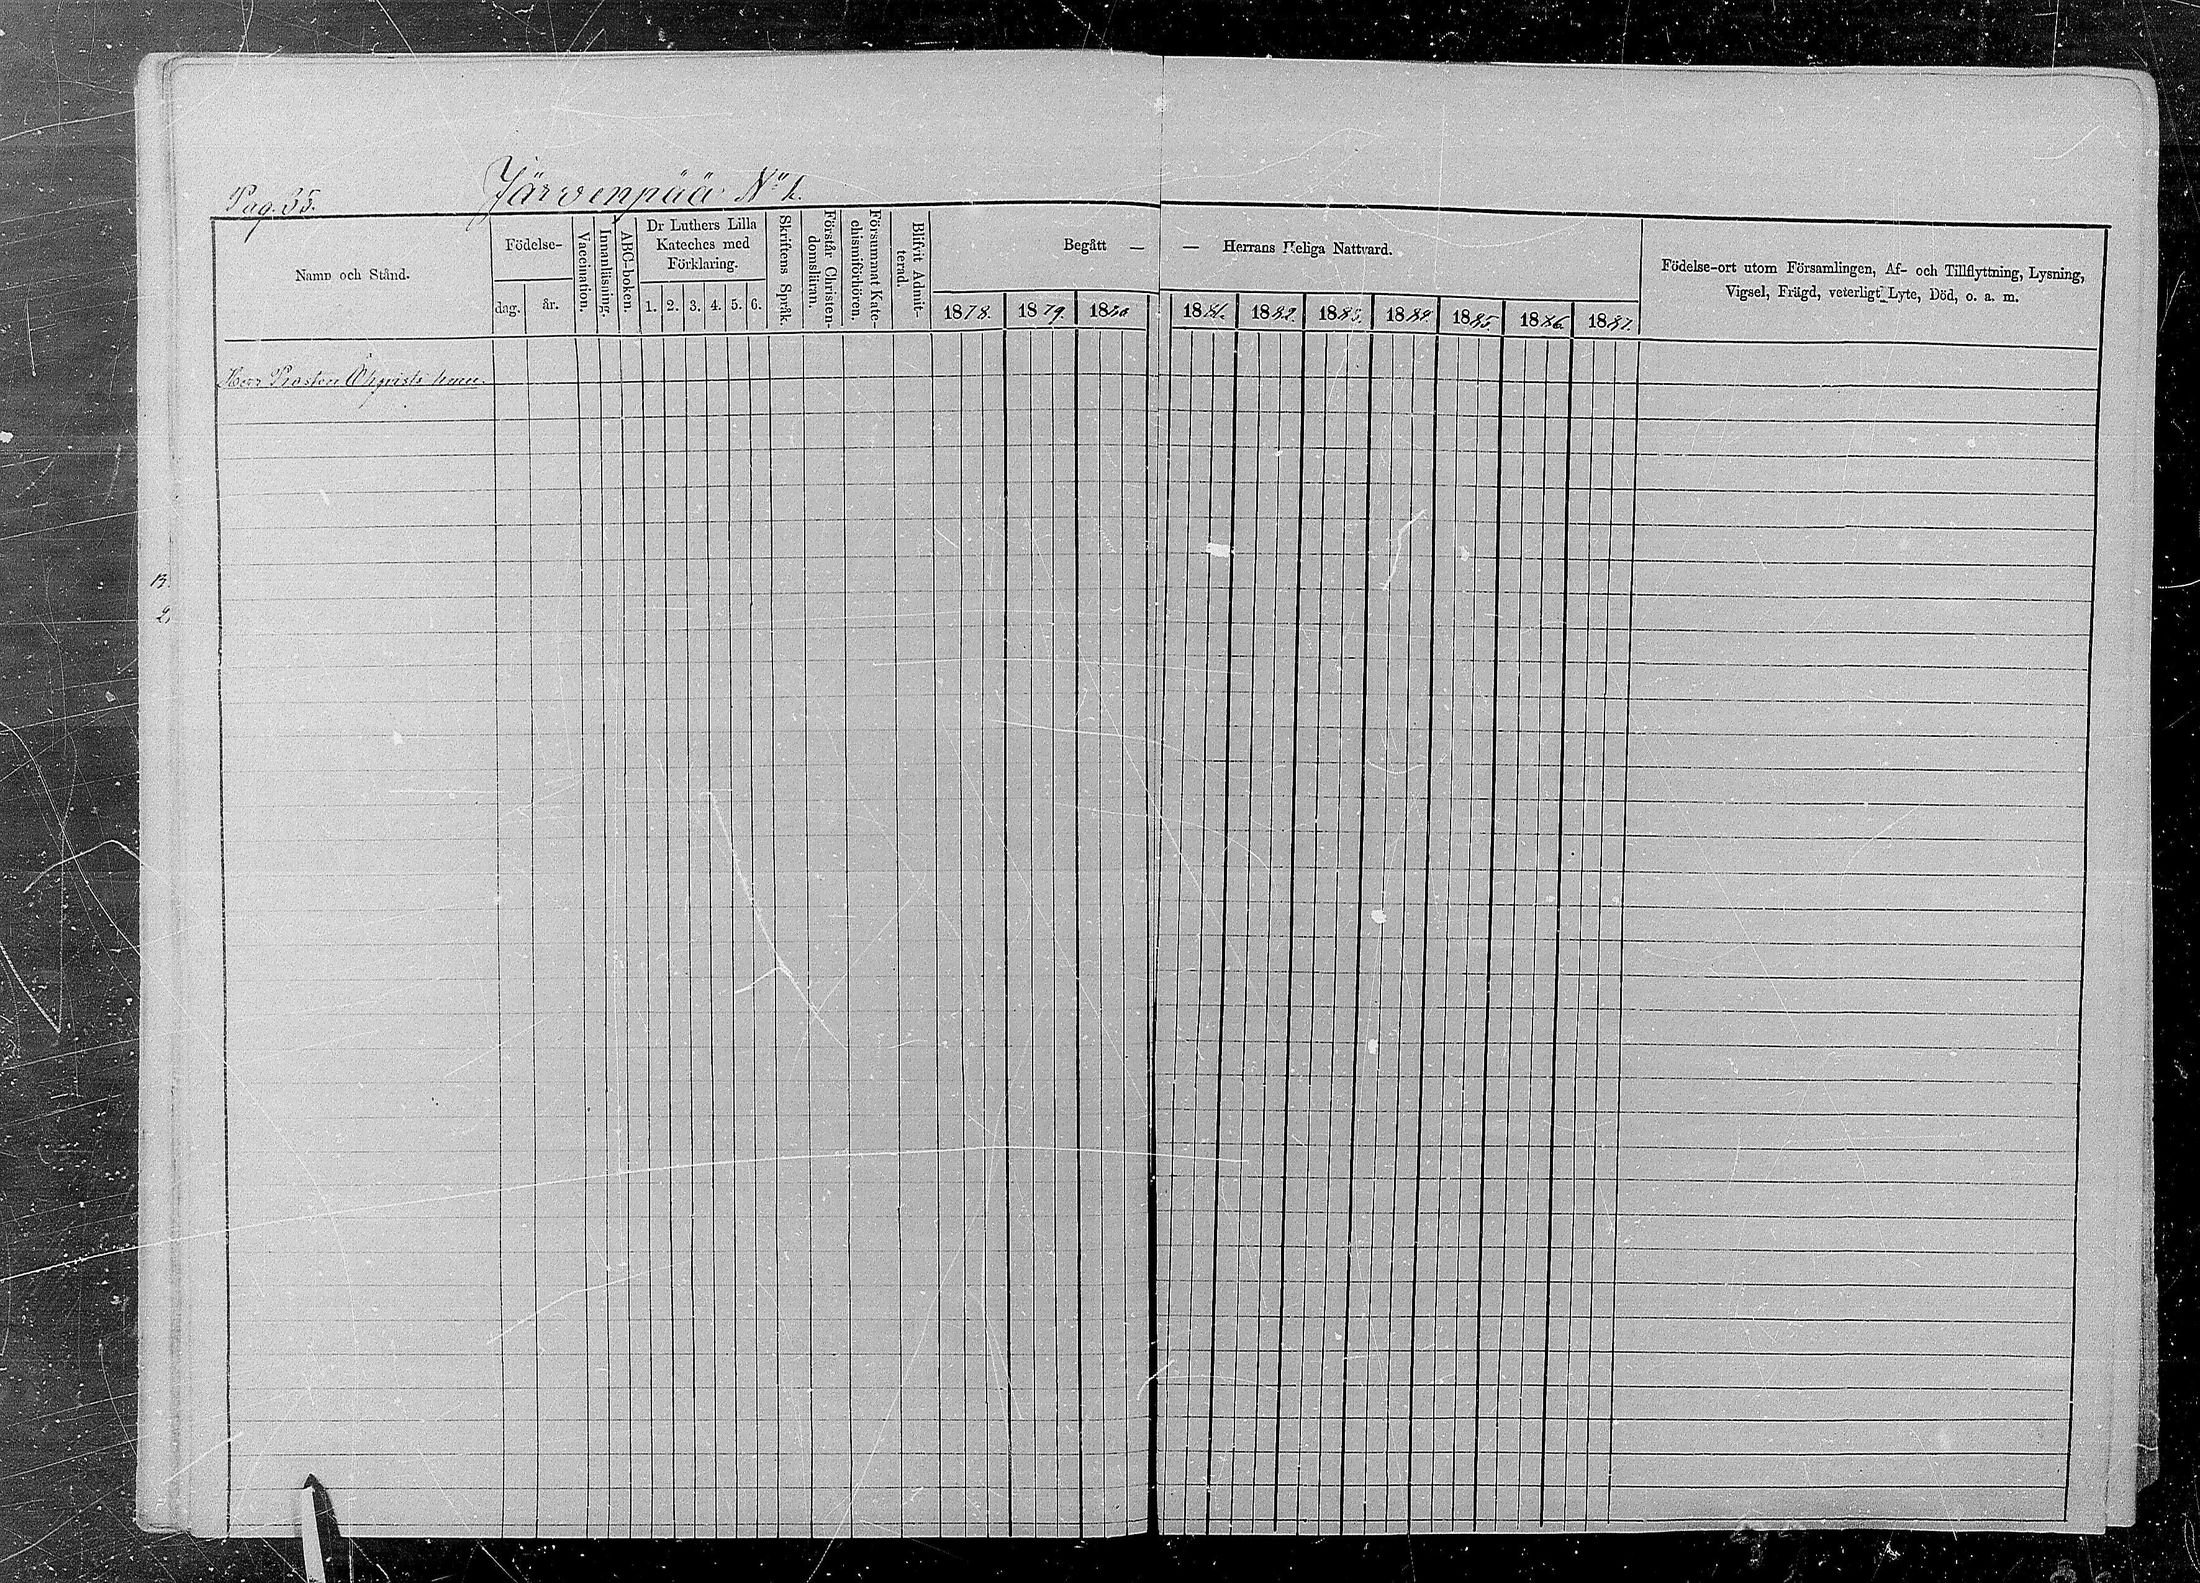 Pag. 35.
Järvenpää No 1.
Namn och Stånd.
Födelse-
dag. år.
Vaccination.
Innanläsning.
ABC-boken.
Dr Luthers Lilla
Kateches med
Förklaring.
1. 2. 3. 4. 5. 6.
Skriftens Språk.
Förstår Christen-
domsläran.
Försummat Kate-
chismiförhören.
Blifvit Admit-
terad.
Begått — — Herrans Heliga Nattvard.
1878. 1879. 1880 1881. 1882. 1883. 1884 1885. 1886. 1887.
Födelse-ort utom Församlingen, Af- och Tillflyttning, Lysning,
Vigsel, Frägd, veterligt Lyte, Död, o. a. m.
Herr Prosten Öhqvists
13.
2.